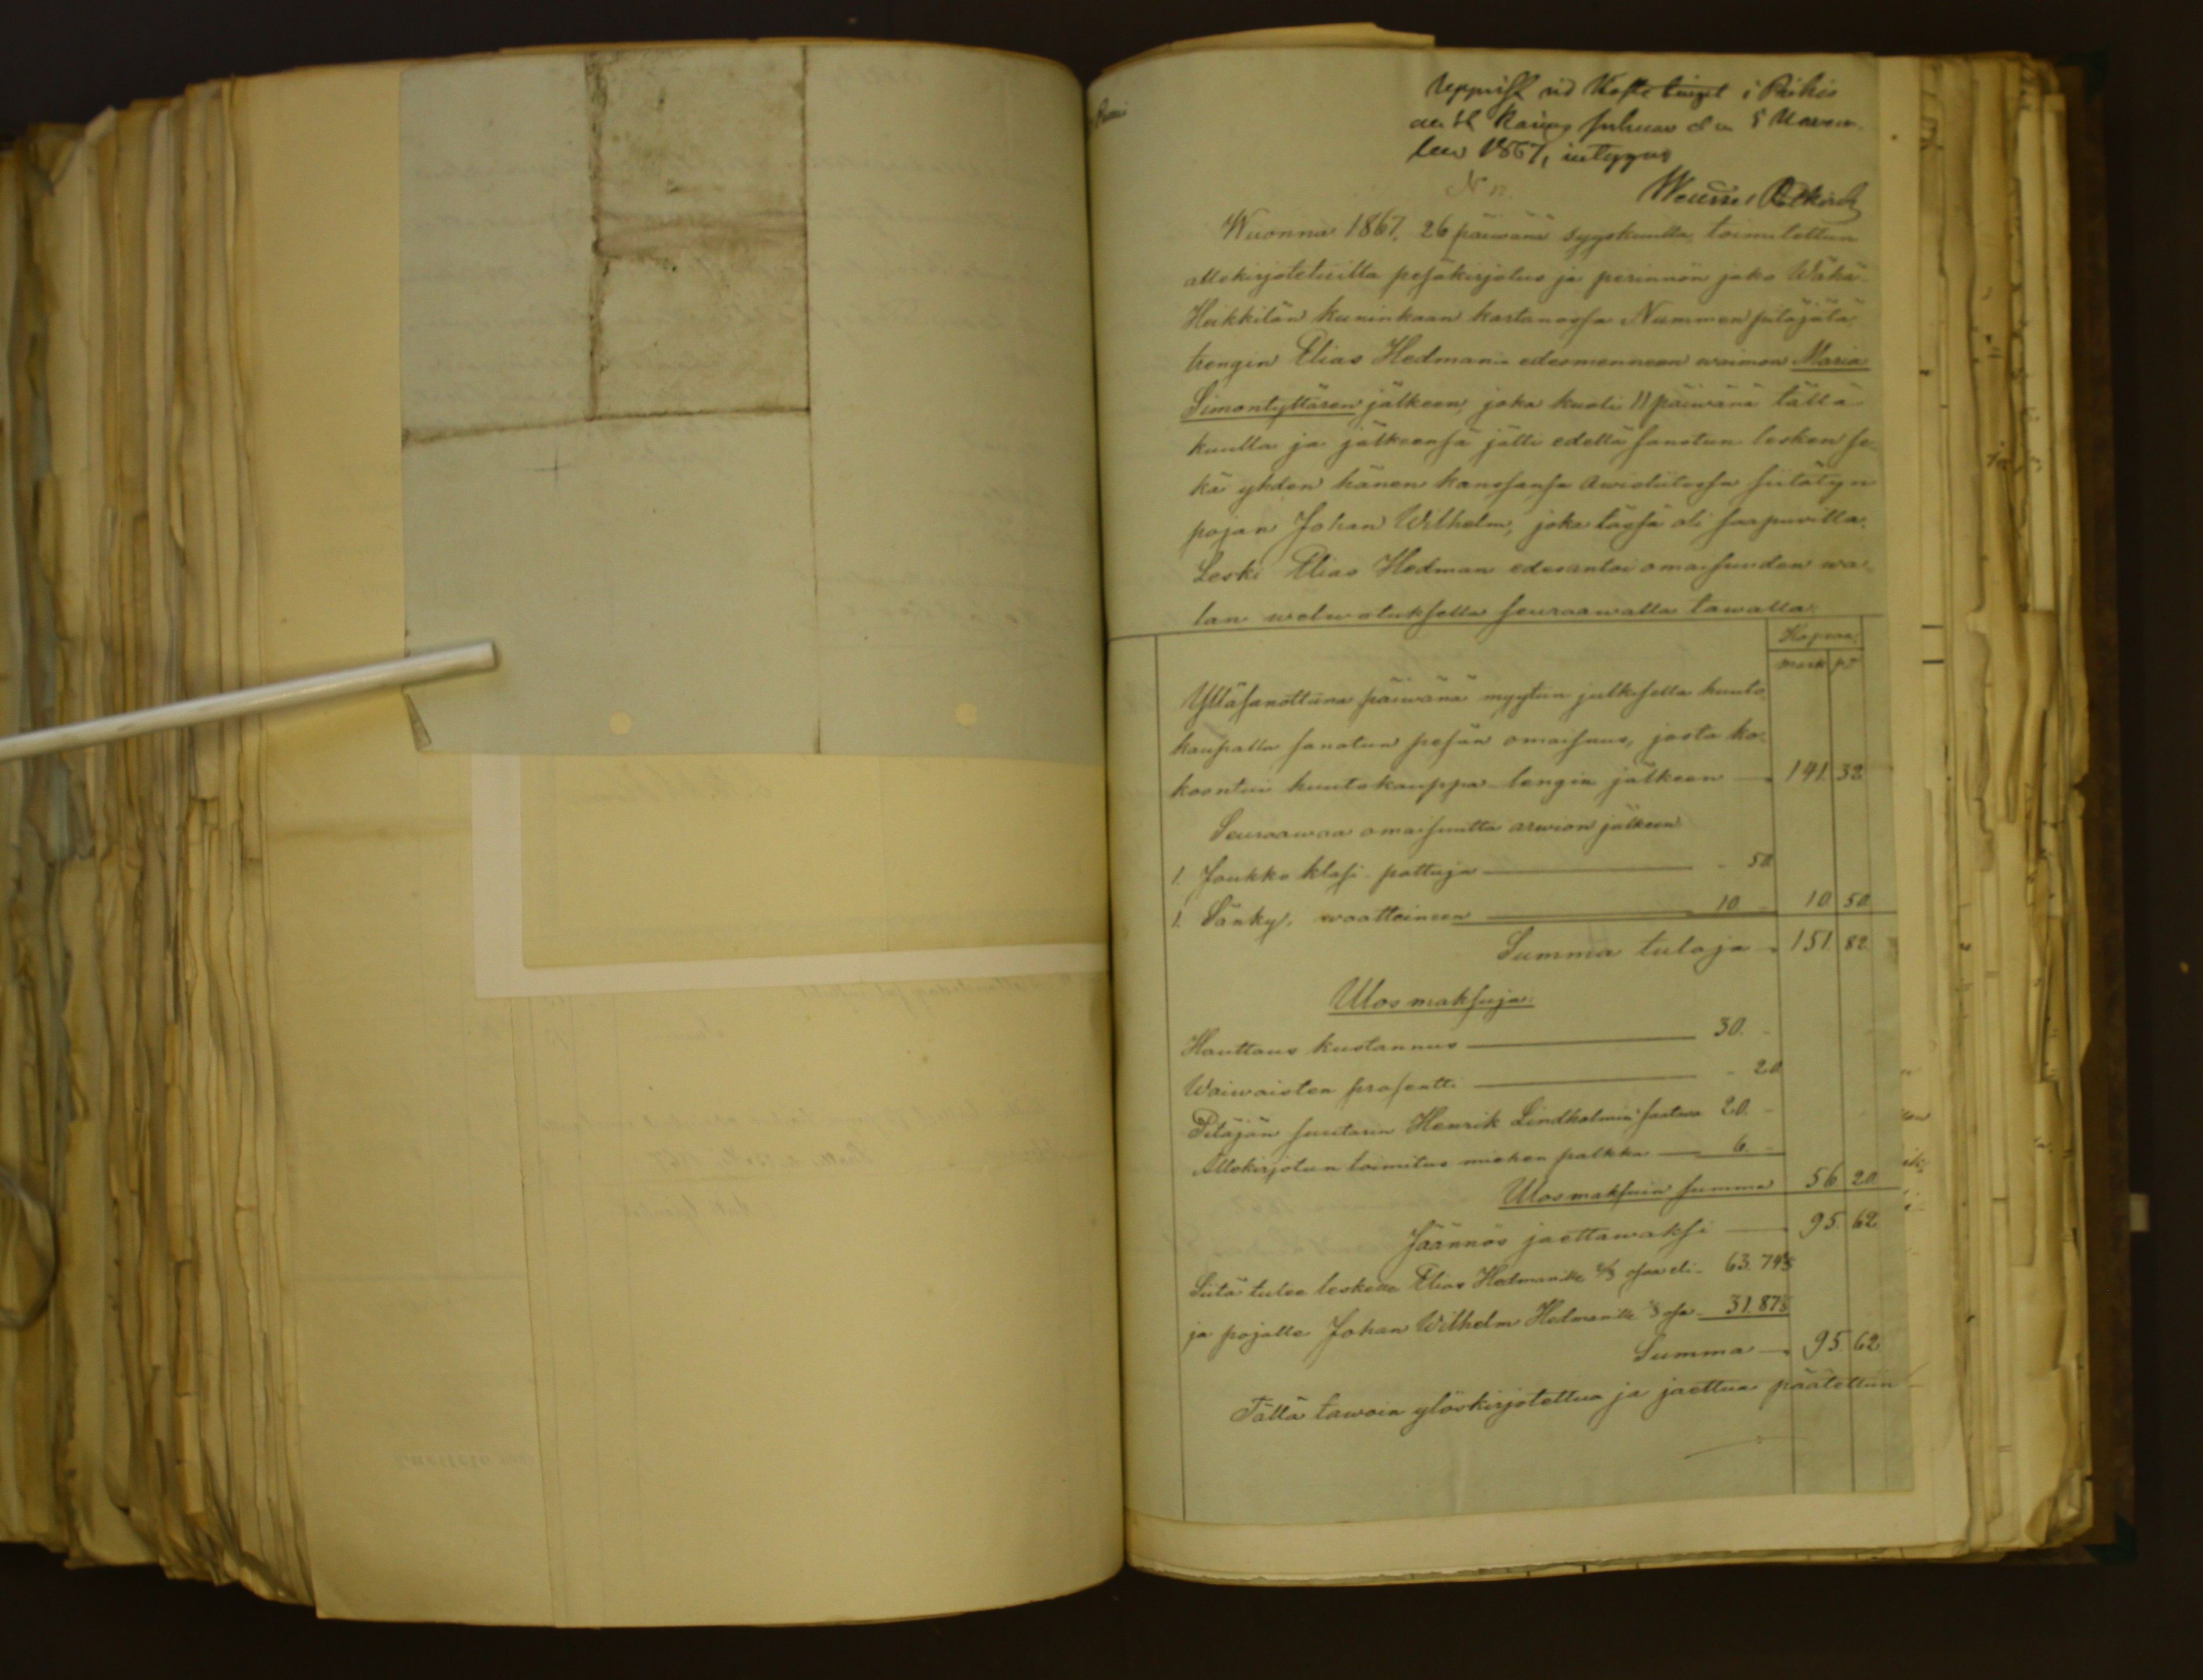 Uppvist vid Hösttinget i Pikis
och St Karins socknar den 5 Novem-
ber 1867, intygas
N 12.
Wuonna 1867, 26 päiwänä syyskuulla, toimitettun
allekirjotetuilta pesäkirjotus ja perinnön jako Wähä-
Heikkilän kuninkaan kartanossa Nummen pitäjätä,
trengin Elias Hedmanin edesmenneen waimon Maria
Simontyttären jälkeen, joka kuoli 11 päiwänä tällä
kuulla ja jälkeensä jätti edellä sanotun lesken se-
kä yhden hänen kanssansa awioliitossa siitätyn
pojan Johan Wilhelm, joka tässä oli saapuvilla.
Leski Elias Hedman edesantoi omaisuuden wa-
lan welwotuksella seuraawalla tawalla:
Hopeaa.
mark pi
Ylläsanottuna päiwänä myytiin julkisella huuto-
kaupalla sanotun pesän omaisuus, josta ko-
koontui huutokauppa-lengin jälkeen — 141. 32
Seuraawaa omaisuutta arwion jälkeen
1. Joukko klasi-pottuja — - 50.
1. Sänky, waatteineen — 10 - 10. 50
Summa tuloja - 151. 82
Ulosmaksuja:
Hauttaus kustannus — 30. -
Waiwaisten prosentti — - 20
Pitäjän suutarin Henrik Lindholmin saatava 20. -
Allekirjotun toimitus miehen palkka — 6. -
Ulosmaksuin summa 56 20
Jäännös jaettawaksi — 95. 62
Siitä tulee leskelle Elias Hedmanille 2/3 osaa eli - 63. 74 2/3
ja pojalle Johan Wilhelm Hedmanille 1/3 osa - 31. 87 1/3
Summa — 95. 62
Tällä tawoin ylöskirjotettua ja jaettua päätettiin